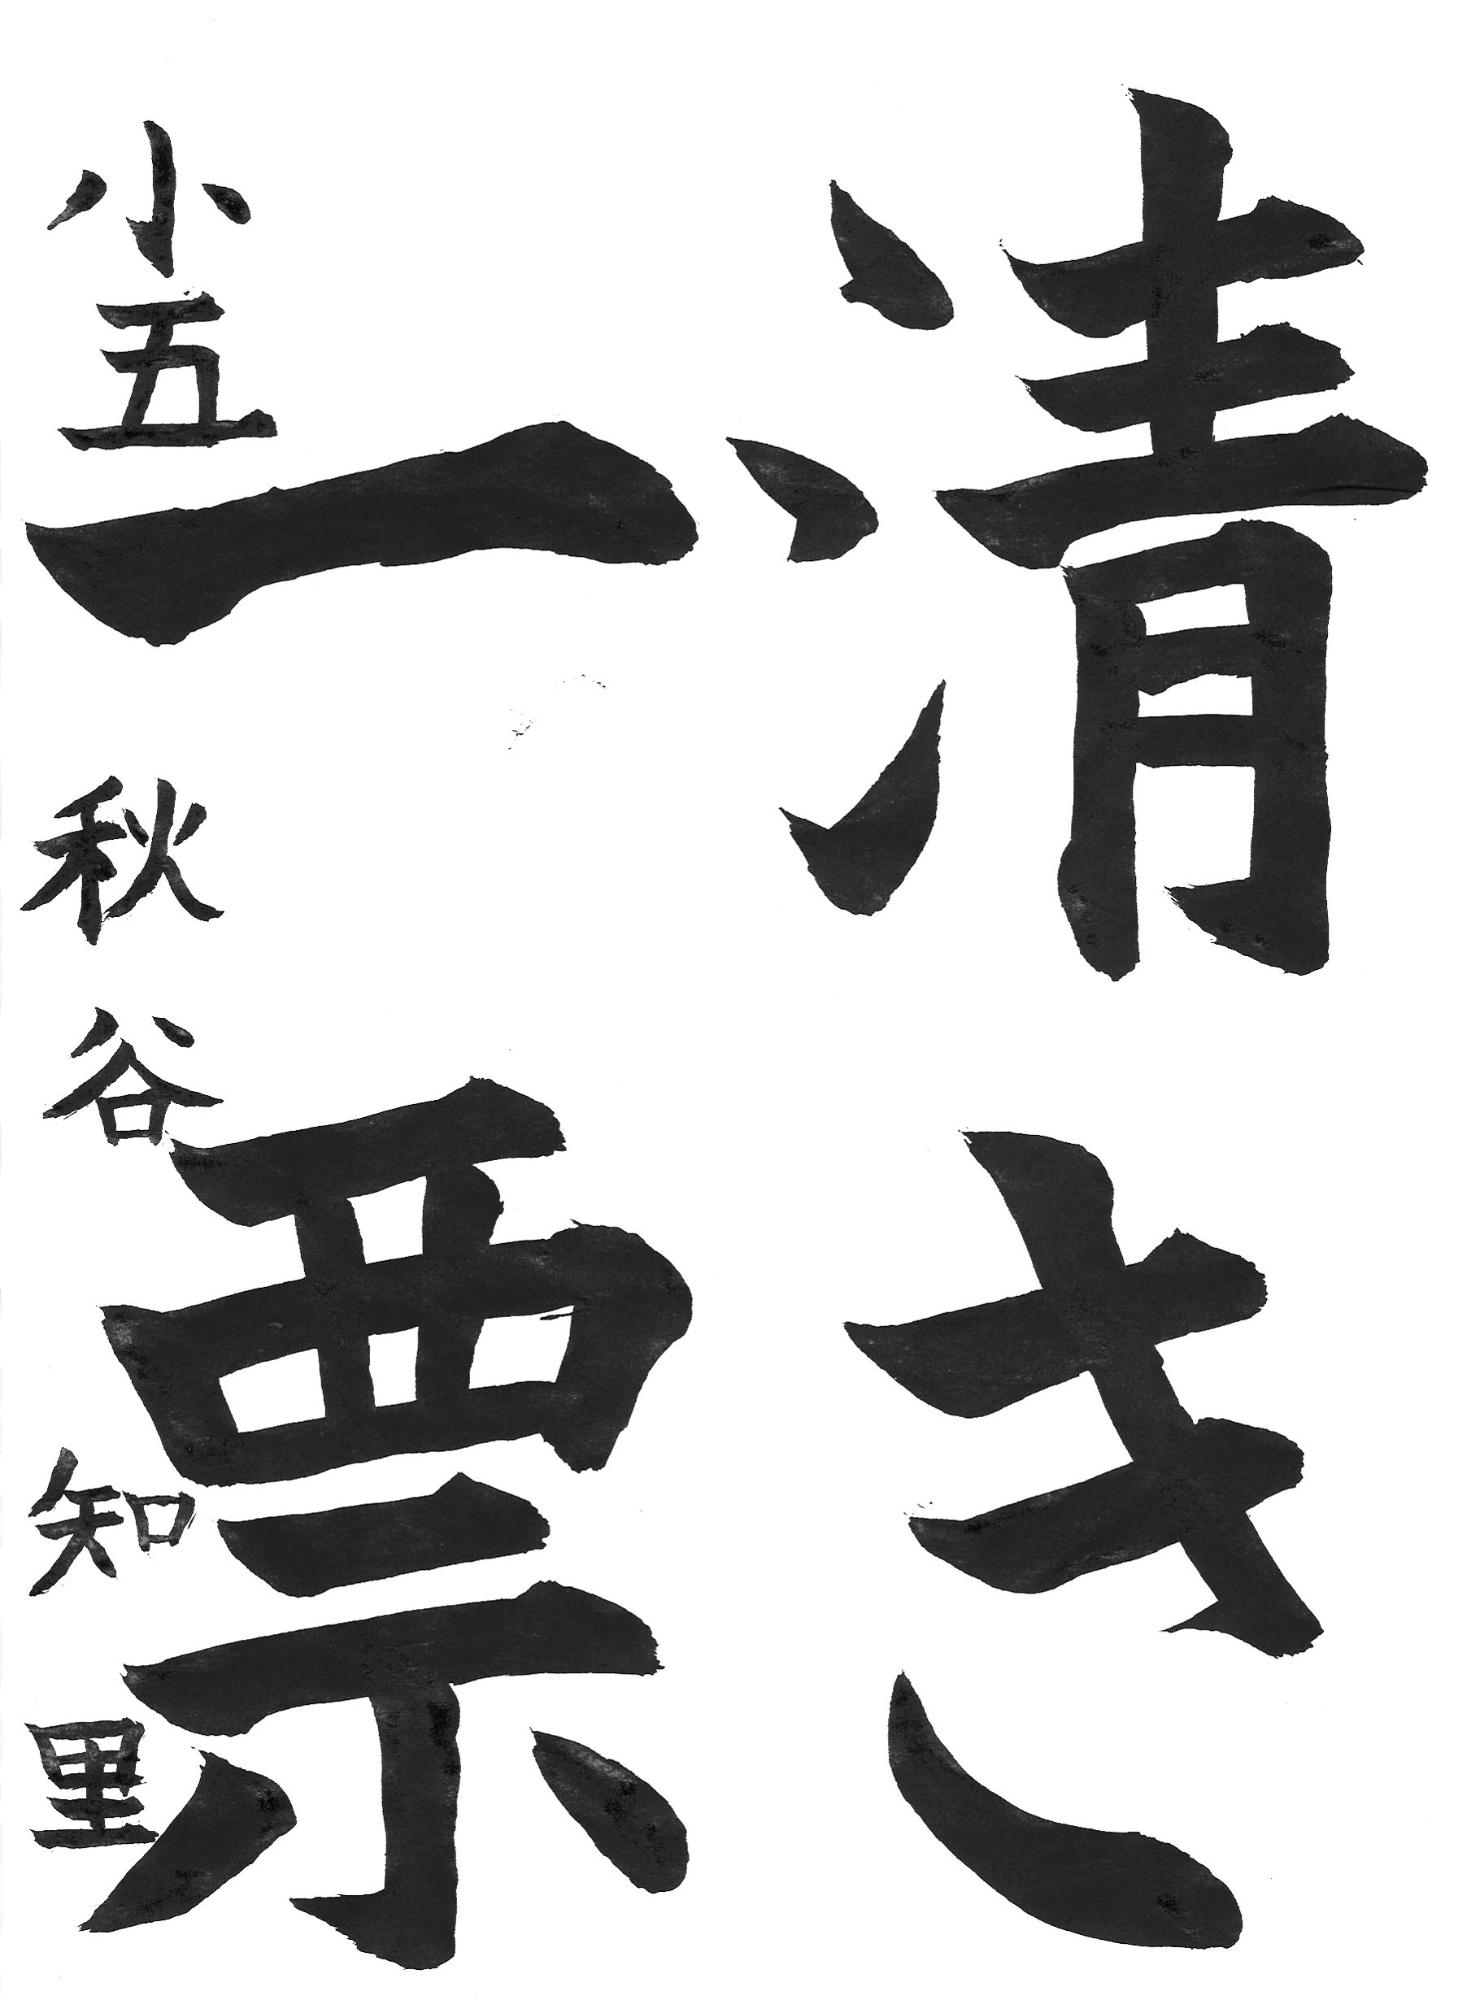 清き
一票
小五 秋谷知里